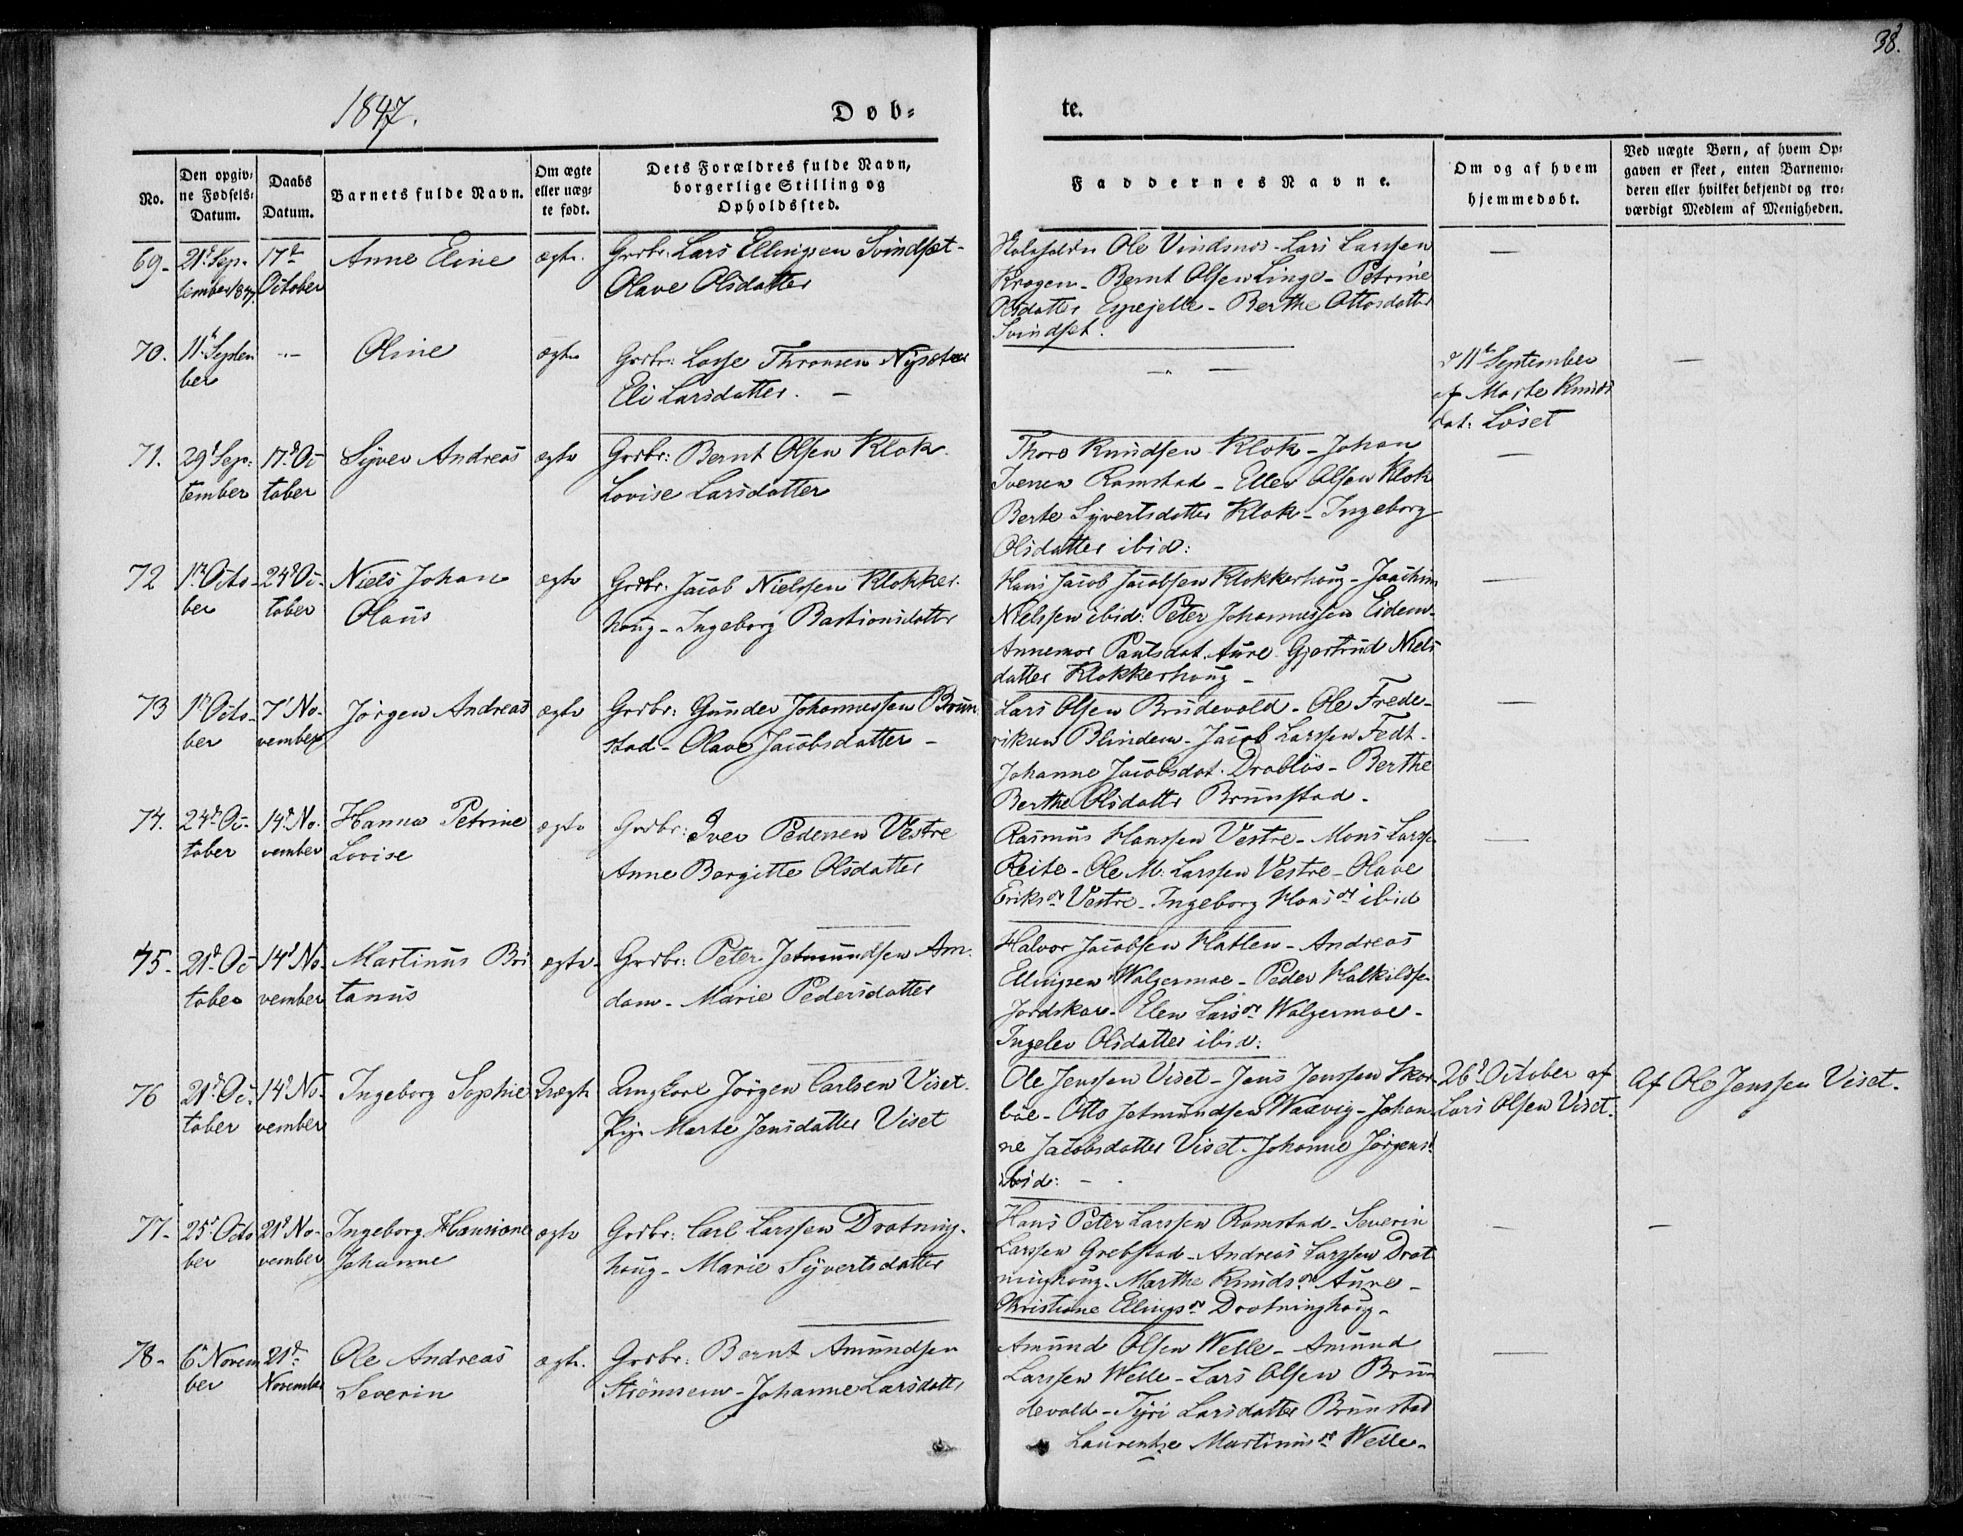 38.
1847.
Døb-
te.
No.
Den opgiv-
ne Fødsels-
Datum.
Daabs
Datum.
Barnets fulde Navn.
Om ægte
eller uæg-
te født.
Dets Forældres fulde Navn,
borgerlige Stilling og
Opholdssted.
Faddernes Navne.
Om og af hvem
hjemmedøbt.
Ved uægte Børn, af hvem Op-
gaven er skeet, enten Barnemo-
deren eller hvilket bekjendt og tro-
værdigt Medlem af Menigheden.
69-
21d Sep-
tember 1847.
17d
October
Anne Eline
ægte.
Grdbr: Lars Ellingsen Svindset-
Olave Olsdatter
Ole Vindsnes- Lars Larssen
Krogen- Bernt Olsen Linge- Petrine
Olsdatter Espejelle- Berthe Ottosdatter
Svindset.
—
70.
11t Septem
ber
-"-
Oline
ægte
Grdbr: Lasse Thronsen Nysæter
Eli Larsdatter. —
—"—
d 11te September
af Marte Knuds
dat: Løset
—
71.
29d Sep:
tember
17d Oc
tober
Syver Andreas
ægte
Grdbr: Bernt Olsen Klok-
Lovise Larsdatter
Thore Knudsen Klok- Johan
Iversen Ramstad- Eller Olsen Klok
Berte Syvertsdatter Klok- Ingeborg
Olsdatter ibid:
—
72
1st Octo-
ber
24d Oc-
tober
Niels Johan
Olaus
ægte
Grdbr: Jacob Nielssen Klokker-
houg- Ingeborg Bastiansdatter
Hans Jacob Jacobsen Klokkerhoug- Joachim
Nielssen ibid: Peter Johannessen Eidem-
Annemor Paulsdat. Aure Gjertrud Niels
datter Klokkerhoug-
—
73
1st Octo-
ber
7d No-
vember
Jørgen Andreas
ægte
Grdbr: Gunder Johannessen Brun
stad- Olave Jacobsdatter-
Lars Olsen Brudevold- Ole Frede-
riksen Blindem- Jacob Larssen Fedt-
Johanne Jacobsdat. Drabløs- Berthe
Berthe Olsdatter Brunstad-
—
74.
24d Oc-
tober
14d No-
vember
Hanna Petrine
Lovise
ægte
Grdbr: Iver Pedersen Vestre
Anne Bergitte Olsdatter
Rasmus Hanssen Vestre- Mons Larsse
Reite- Ole M. Larssen Vestre- Olave
Eriksdr Vestre- Ingeborg Hansdr ibid
—
75-
21d Oc-
tober
14d No-
vember
Martinus Bri
tanus
ægte-
Grdbr: Peter Jetmundsen Am-
dam- Marie Pedersdatter
Halvor Jacobsen Hatlen- Andreas
Ellingsen Walgermoe- Peder Halkilsse-
Jordskar- Elen Larsdr Walgermoe-
Ingelev Olsdatter ibid:
76
21d Oc-
tober
14d No-
vember
Ingeborg Sophie
Uægte
Ungkarl Jørgen Carlsen Viset-
Pige Marte Jensdatter Viset
Ole Jenssen Viset- Jens Jenssen Skor-
bøe- Otto Jetmundsen Waavig- Johan-
ne Jacobsdatter Viset- Johanne Jørgensd
ibid: -
26d October af
Lars Olsen Viset.
Af Ole Jenssen Viset.
77-
25d Octo
ber
21d No-
vember
Ingeborg Hansiane
Johanne
ægte
Grdbr: Carl Larssen Drotning-
houg- Marie Syvertsdatter
Hans Peter Larssen Ramstad- Severin
Larssen Grebstad- Andreas Larssen Drot
ninghoug- Marthe Knudsdr Aure-
Christiane Ellingsdr Drotninghoug-
—
—
78-
6t Novem
ber
21d
November
Ole Andreas
Severin
ægte.
Grdbr: Bernt Amundsen
Strømmen- Johanne Larsdatter
Amund Olsen Welle- Amund
Larssen Welle- Lars Olsen Bru
devold- Tyri Larsdatter Brunstad
Laurentze Martinusdr Welle-
—